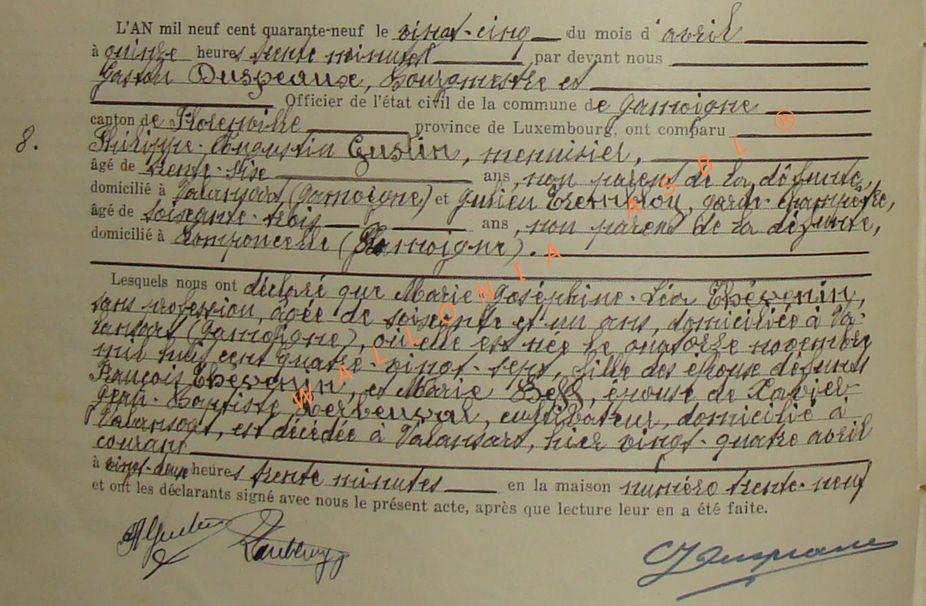 L'AN mil neuf cent quarante-neuf le vingt-cinq du mois d'avril
à quinze heures trente minutes par devant nous
Gaston Duspeaux, Bourgmestre et
Officier de l'état civil de la commune de Jamoigne
canton de Florenville province de Luxembourg, ont comparu
8. Philippe-Augustin Gustin, menuisier,
âgé de trente-six ans, non parent de la défunte,
domicilié à Valansart (Jamoigne) et Julien garde-champêtre,
âgé de soixante-trois ans, non parent de la défunte,
domicilié à Romponcelle (Jamoigne).
Lesquels nous ont déclaré que Marie-Joséphine-Léa Thévenin,
sans profession, âgée de soixante et un ans, domiciliée à Va-
lansart (Jamoigne), où elle est née le quatorze novembre
mil huit cent quatre-vingt-sept, fille des époux défunts
François Thévenin, et Marie épouse de Xavier
Jean-Baptiste cultivateur, domicilié à
Valansart, est décédée à Valansart, hier vingt-quatre avril
courant
à vingt-deux heures trente minutes en la maison numéro trente-neuf
et ont les déclarants signé avec nous le présent acte, après que lecture leur en a été faite.
WALLONIA ASBL ®